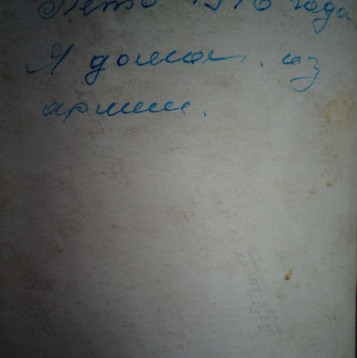 Лето 1976 года
Я дома. из
армии.